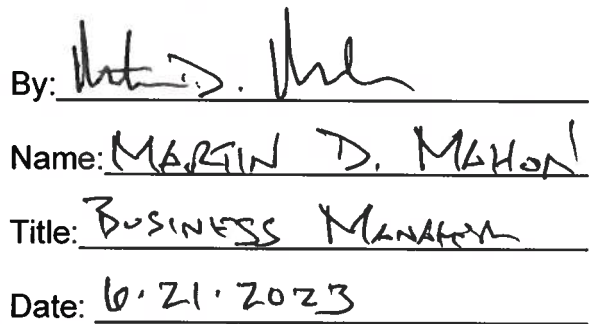 By: Martin D. Mahon
Name: MARTIN D. MAHON
Title: BUSINESS MANAGER
Date: 6.21.2023